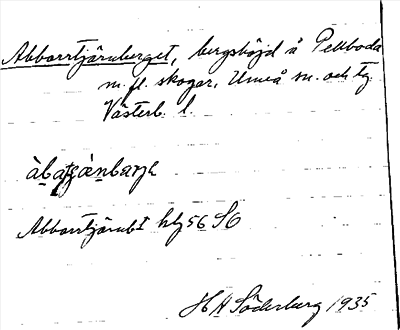 Abborrtjärnberget, bergshöjd å Pellboda
m. fl. skogar, Umeå sn. och tg.
Västerb. l.
Abborrtjärnb I hlj 56 SO
H A Söderberg 1935